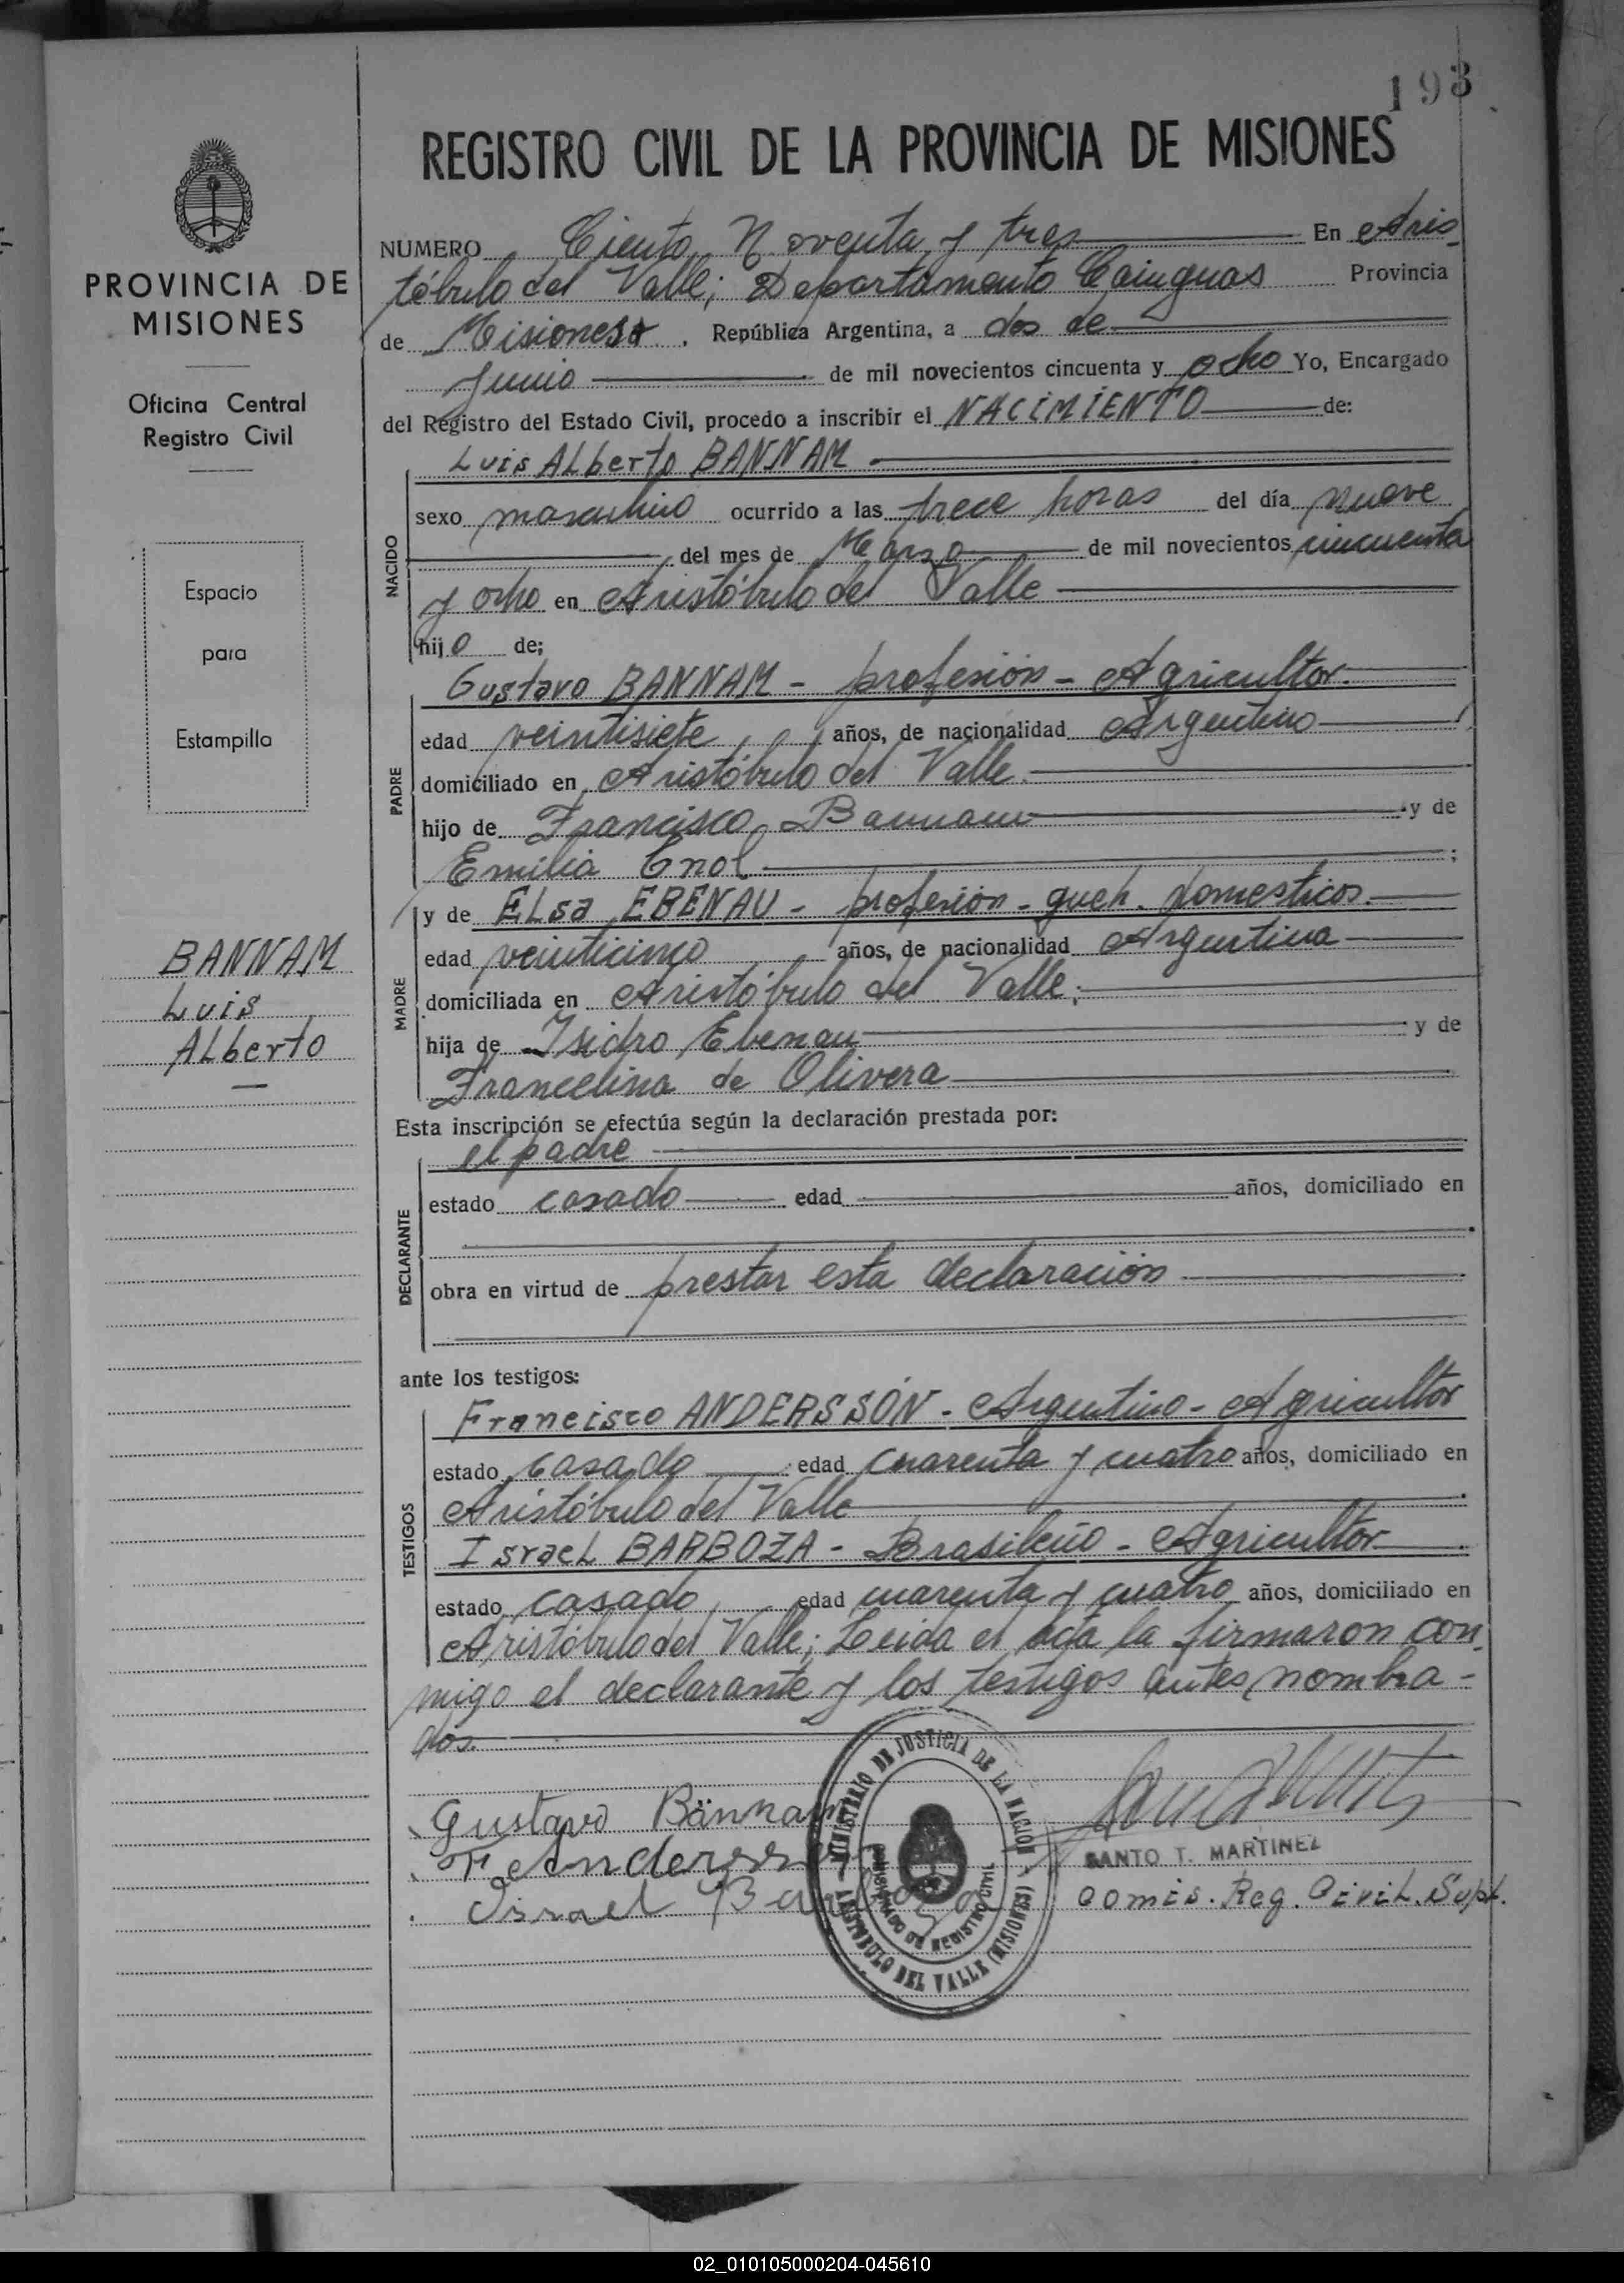 193
REGISTRO CIVIL DE LA PROVINCIA DE MISIONES
PROVINCIA DE
MISIONES
Oficina Central
Registro Civil
Espacio
para
Estampilla
BANNAM
Luis
Alberto
NUMERO Ciento Noventa y tres En Aris
tóbulo del Valle; Departamento Cainguas Provincia
de Misiones. República Argentina, a dos de
Junio de mil novecientos cincuenta y ocho Yo, Encargado
del Registro del Estado Civil, procedo a inscribir el NACIMIENTO de:
Luis ALberto BANNAM
NACIDO
sexo masculino ocurrido a las trece horas del día nueve
del mes de Marzo de mil novecientos cincuenta
y ocho en Aristóbulo del Valle
hijo de;
Gustavo BANNAM - profesión - Agricultor.
PADRE
edad veintisiete años, de nacionalidad Argentino
domiciliado en Aristóbulo del Valle.
hijo de Francisco Bannam y de
Emilia Cnol ;
y de ELsa EBENAU - profesión - queh. domesticos.
MADRE
edad veinticinco años, de nacionalidad Argentina
domiciliada en Aristóbulo del Valle;
hija de Isidro Ebenau y de
Francelina de Olivera
Esta inscripción se efectúa según la declaración prestada por:
el padre
DECLARANTE
estado casado edad años, domiciliado en
obra en virtud de prestar esta declaración
ante los testigos:
Francisco ANDERSSÓN - Argentino - Agricultor
TESTIGOS
estado casado edad cuarenta y cuatro años, domiciliado en
Aristóbulo del Valle
IsraeL BARBOZA - Brasileño - Agricultor
estado casado edad cuarenta y cuatro años, domiciliado en
Aristóbulo del Valle; Leida el acta la firmaron con
migo el declarante y los testigos antes nombra-
dos.
Gustavo Bännam
F. Andersson
Israel Barboza
MINISTERIO DE JUSTICIA DE LA NACION
ARISTOBULO DEL VALLE (MISIONES)
DE REGISTRO CIVIL
SANTO T. MARTINEZ
Comis. Reg. Civil. Supt.
02_010105000204-045610